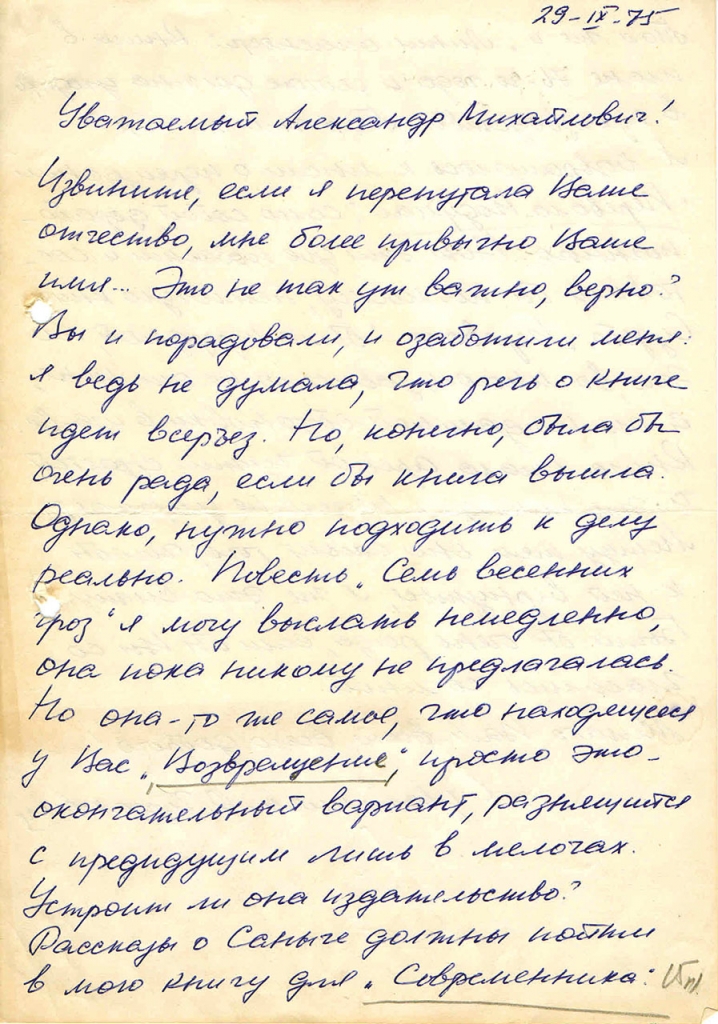 29-IX-75
Уважаемый Александр Михайлович!
Извините, если я перепутала Ваше
отчество, мне более привычно Ваше
имя... Это не так уж важно, верно?
Вы и порадовали, и озаботили меня:
я ведь не думала, что речь о книге
идет всерьез. Но, конечно, была бы
очень рада, если бы книга вышла.
Однако, нужно подходить к делу
реально. Повесть „Семь весенних
гроз" я могу выслать немедленно,
она пока никому не предлагалась.
Но она-то же самое, что находящееся
у Вас „Возвращение", просто это-
окончательный вариант, разнящийся
с предыдущим лишь в мелочах.
Устроит ли она издательство?
Рассказы о Саныче должны пойти
в мою книгу для „Современника".